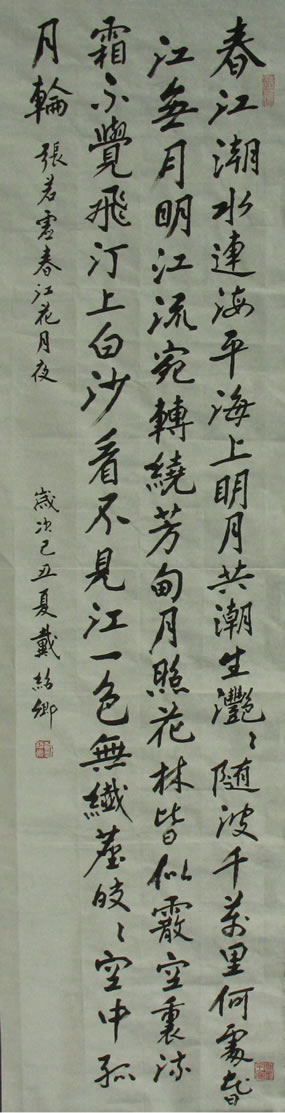 春江潮水連海平海上明月共潮生灩〻随波千萬里何處春
江無月明江流宛轉繞芳甸月照花林皆似霰空裏流
霜不覺飛汀上白沙看不見江一色無纖塵皎〻空中孤
月輪
張若虛春江花月夜
歲次己丑夏戴紹卿